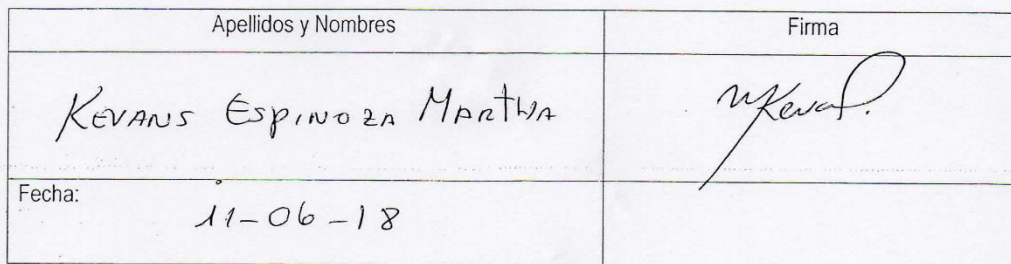 Apellidos y Nombres Firma
KEVANS ESPINOZA MARTHA
Fecha:
11-06-18